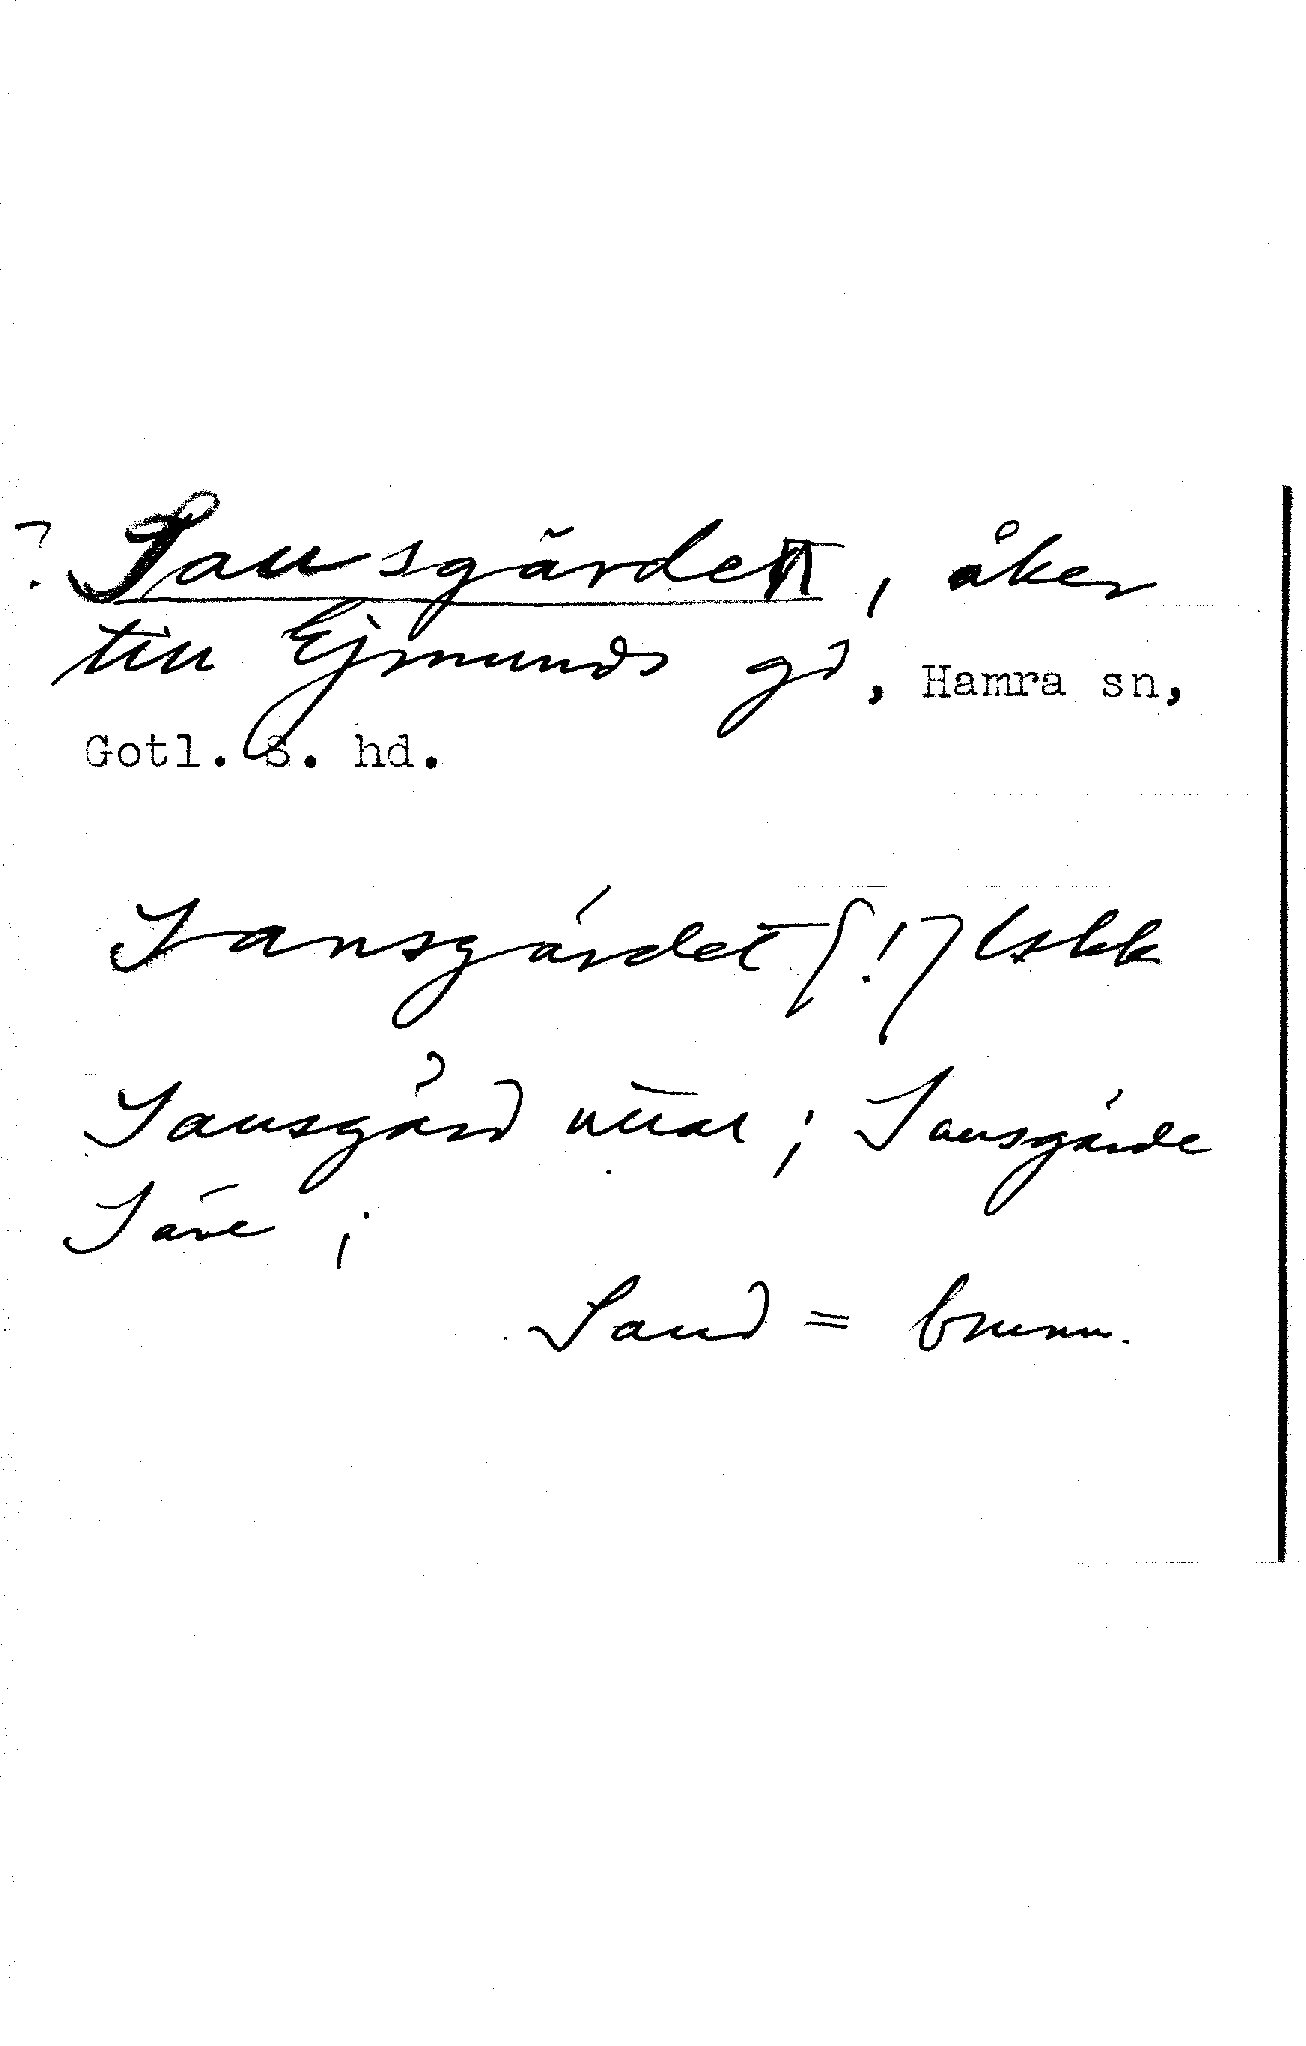 ? Sausgärdet, åker
till Ejmunds gd, Hamra sn,
Gotl. S. hd.
Sansgärdet (!) Lskk
Sausgård uttal ; Sausgärde
Säve ;
Saud = brunn.